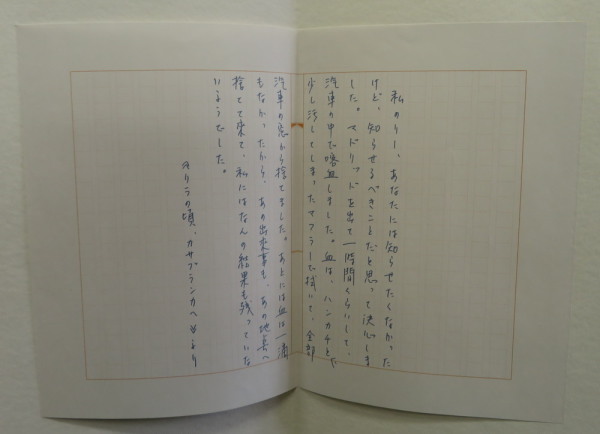 私のリー、あなたには知らせたくなかった
けど、知らせるべきことだと思って決心しま
した。マドリッドを出て一時間くらいして、
汽車の中で喀血しました。血は、ハンカチと
少し汚してしまったマフラーで拭いて、全部
汽車の窓から捨てました。あとには血は一滴
もなかったから、あの出来事も、あの地点へ
捨てて来て、私にはなんの結果も残っていな
いようでした。
モリラの頃、カサブランカへ
より